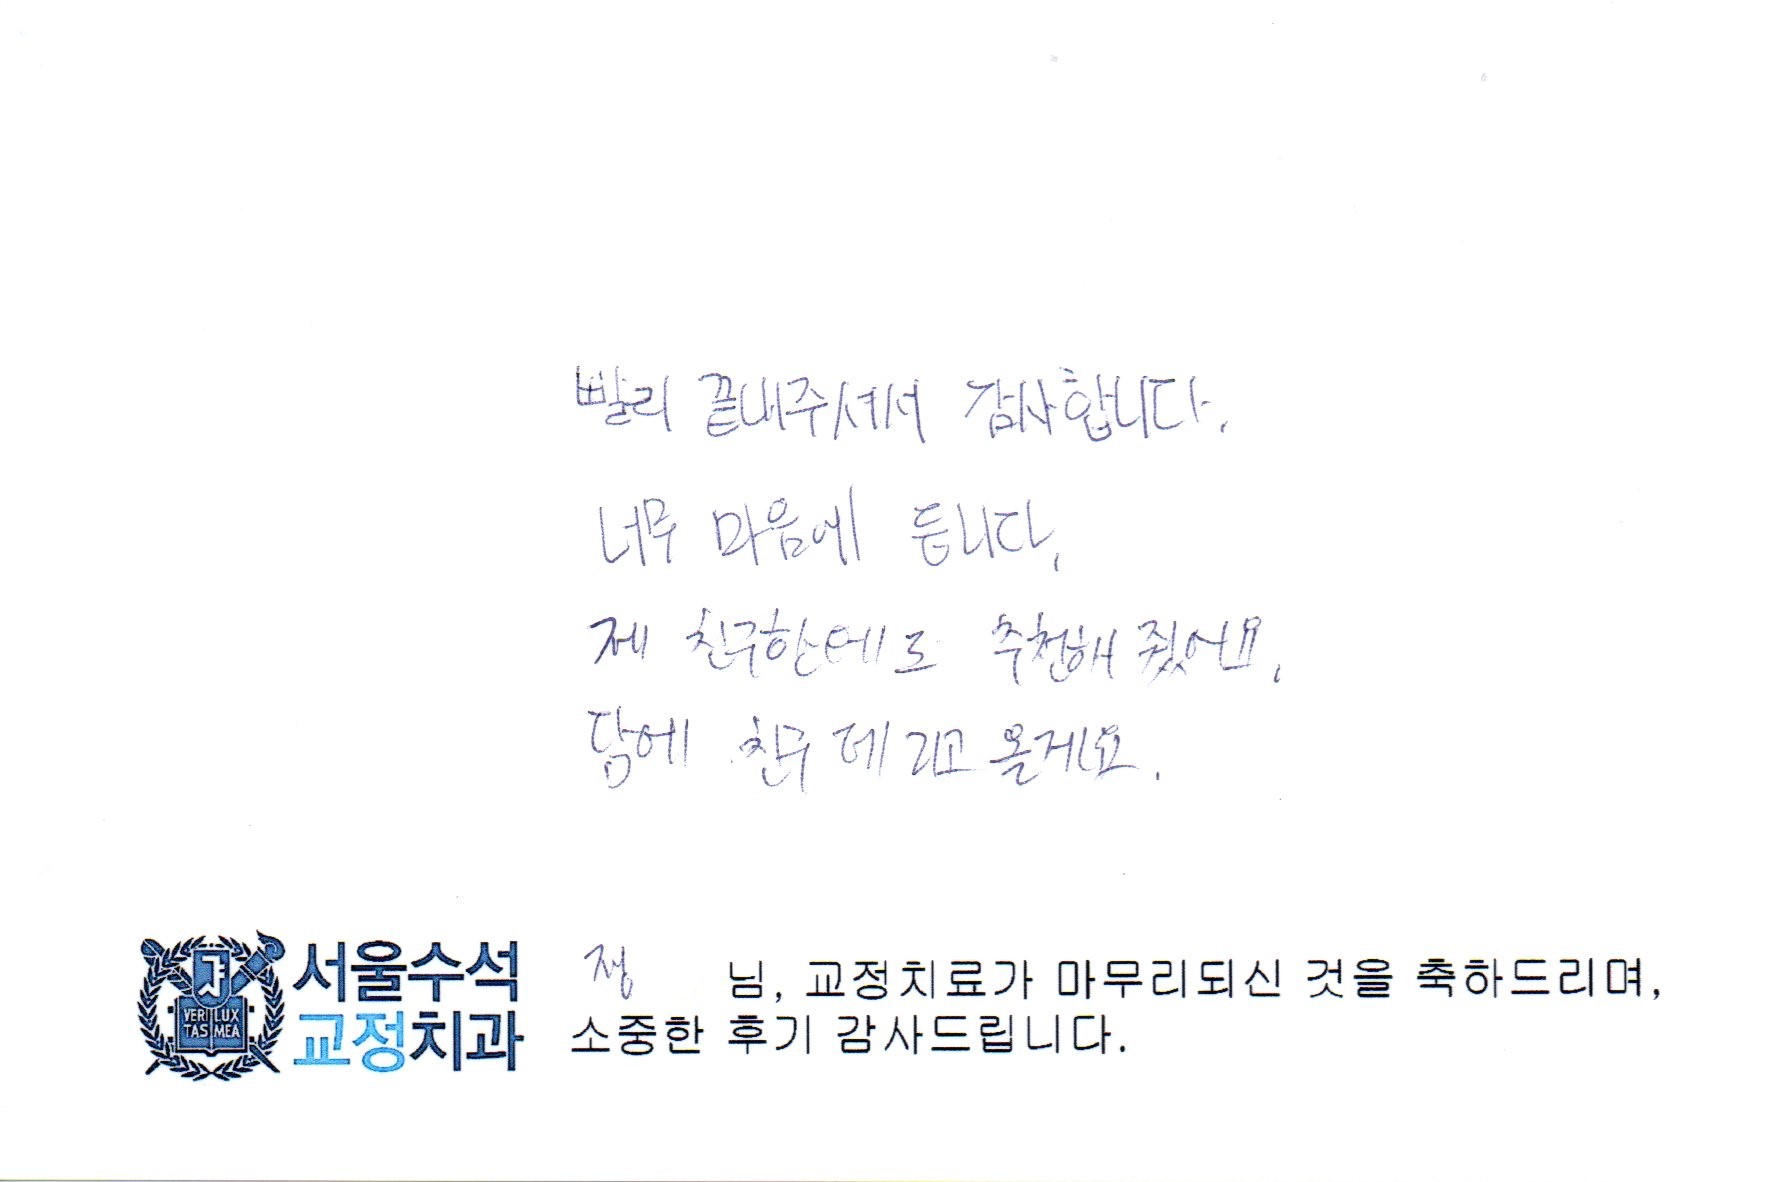 빨리 끝내주셔서 감사합니다.
너무 마음에 듭니다.
제 친구한테도 추천해 줬어요.
담에 친구 데리고 올게요.
서울수석
교정치과
VERI LUX
TAS MEA
정 님, 교정치료가 마무리되신 것을 축하드리며,
소중한 후기 감사드립니다.